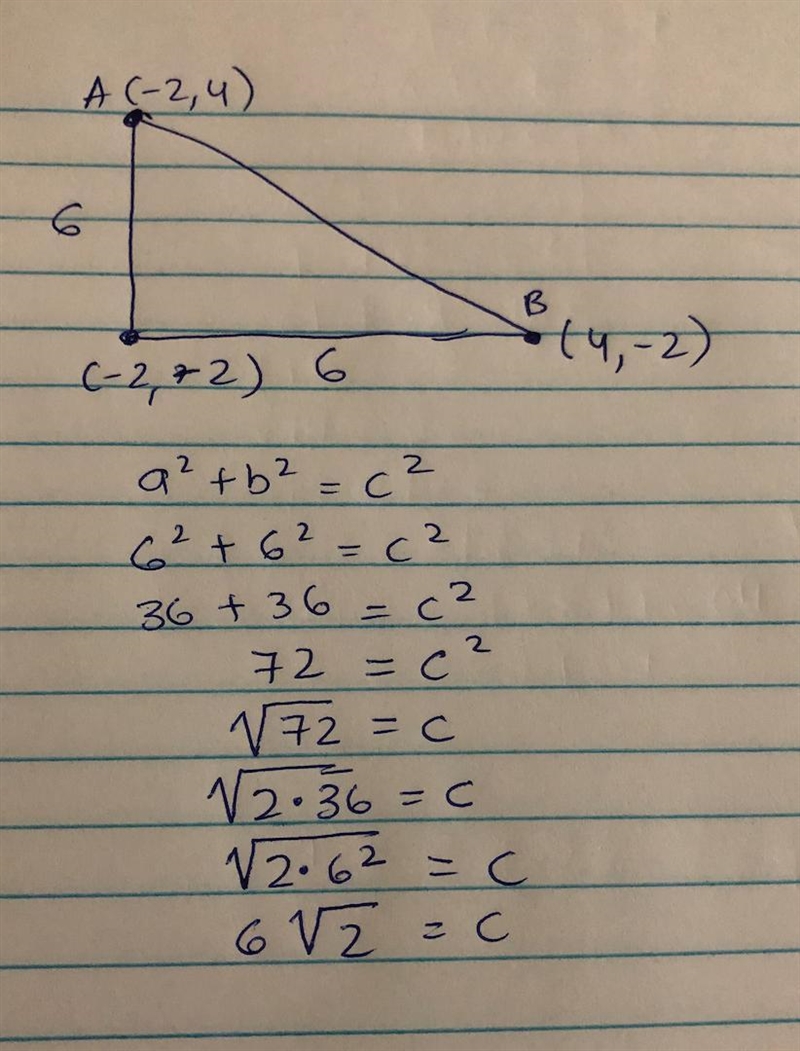 A (-2,4)
6
B
(4,-2)
(-2,-2) 6
a² + b² = c²
6² + 6² = c²
36 + 36 = c²
72 = c²
√72 = c
√2·36 = c
√2·6² = c
6√2 = c